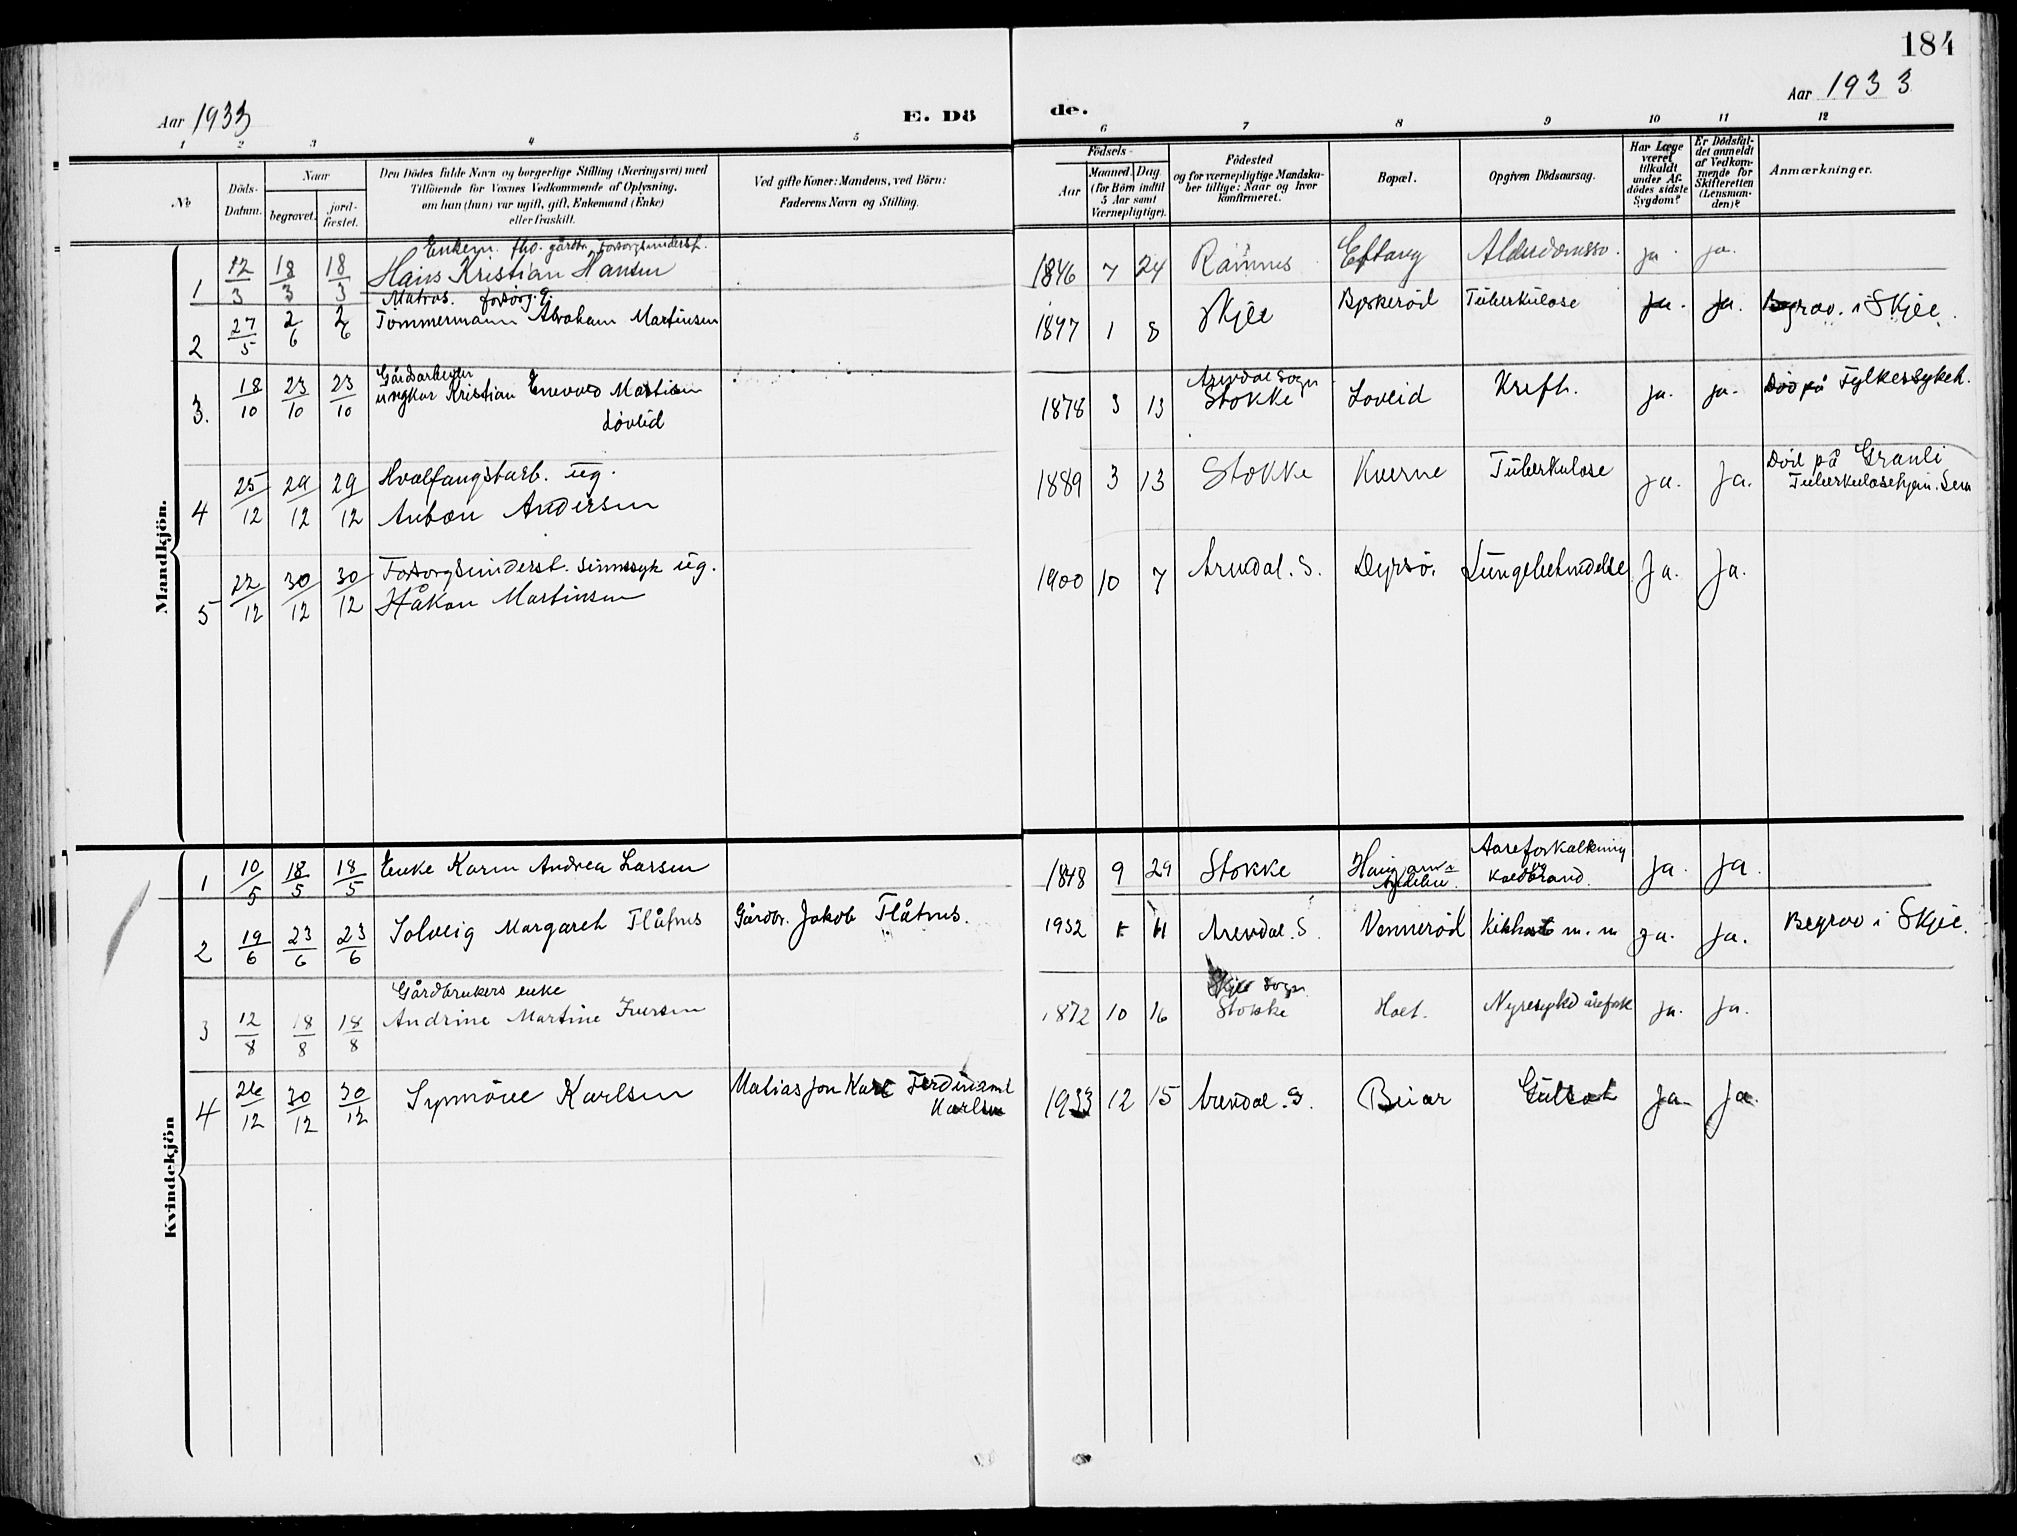 184
Aar 1933
E. Dö
de.
Aar 1933
1 2 3 4 5 6 7 8 9 10 11 12
No
Döds-Datum.
Naar
begravet.
jord-fæstet.
Den Dödes fulde Navn og borgerlige Stilling (Næringsvei) med
Tilföiende for Voxnes Vedkommende af Oplysning,
om han (hun) var ugift, gift, Enkemand (Enke)
eller fraskilt.
Ved gifte Koner: Mandens, ved Börn:
Faderens Navn og Stilling.
Födsels-
Aar
Maaned. Dag.
(for Börn indtil
5 Aar samt
Værnepligtige).
Födested
og for værnepligtige Mandska-
ber tillige: Naar og hvor
konfirmeret.
Bopæl.
Opgiven Dödsaarsag.
Har Læge
været
tilkaldt
under Af-
dödes sidste
Sygdom?
Er Dödsfal-
det anmeldt
af Vedkom-
mende for
Skifteretten
(Lensman-
den)?
Anmærkninger.
Mandkjön.
Enkem. fho. gårdbr. forsorgsunderst.
1 12/3 18/3 18/3 Hans Kristian Hansen 1846 7 24 Ramnes Eftang ja. ja.
Matros. forsørg. g.
2 27/5 2/6 2/6 Tömmermann Abraham Martinsen 1847 1 8 Skjee Tuberkulose ja. ja. Begrav. i Skjee.
Gårdsarbeider
3. 18/10 23/10 23/10 ungkar Kristian Enevald Martinsen
Løvlid
1878 3 13 Arendal sogn
Stokke Loveid Kreft. ja. ja. Död på Fylkessykeh.
4 25/12 29/12 29/12 Hvalfangstarb. ug.
Anton Andersen
1889 3 13 Stokke Kverne Tuberkulose ja. Ja. Död på Granli
Tuberkulosehjem. Sem
5 22/12 30/12 30/12 Forsorgsunderst. sinnssyk ug.
Håkon Martinsen
1900 10 7 Arendal. S. Dyrsö. Lungebetendelse Ja. Ja.
Kvindekjön
1 10/5 18/5 18/5 Enke Karen Andrea Larsen 1848 9 29 Stokke Haugan i
Andebu. Aareforkalkning
og
Koldbrand. ja. ja.
2 19/6 23/6 23/6 Solveig Margareth Flåtnes Gårdbr. Jakob Flåtnes. 1932 11 Arendal. S. Vennerød Kikhoste m. m ja. ja. Begrav i Skjee.
Gårdbrukers enke
3 12/8 18/8 18/8 Andrine Martine Iversen 1872 10 16 Skjee sogn.
Stokke Nyresykd årefork ja. ja.
4 26/12 30/12 30/12 Synnöve Karlsen Matias Jon Karl Ferdinand
Karlsen
1933 12 15 Arendal. S. Gulsot Ja. Ja.